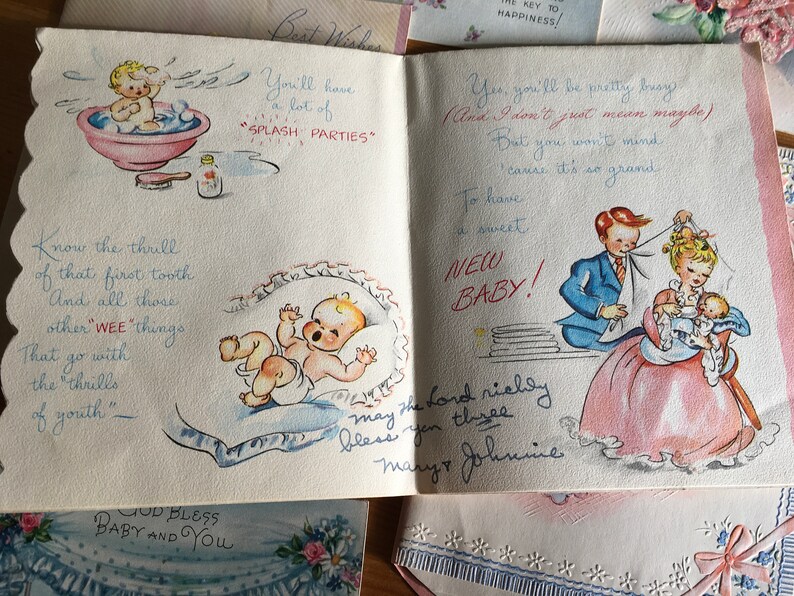 Best Wishes
THE KEY TO
HAPPINESS!
You'll have
a lot of
"SPLASH PARTIES"
Know the thrill
of that first tooth
And all those
other "WEE" things
That go with
the "thrills
of youth"—
Yes, you'll be pretty busy
(And I don't just mean maybe)
But you won't mind
'cause it's so grand
To have
a sweet
NEW
BABY!
may the Lord richly
bless you three
Mary & Johnnie
GOD BLESS
BABY AND YOU